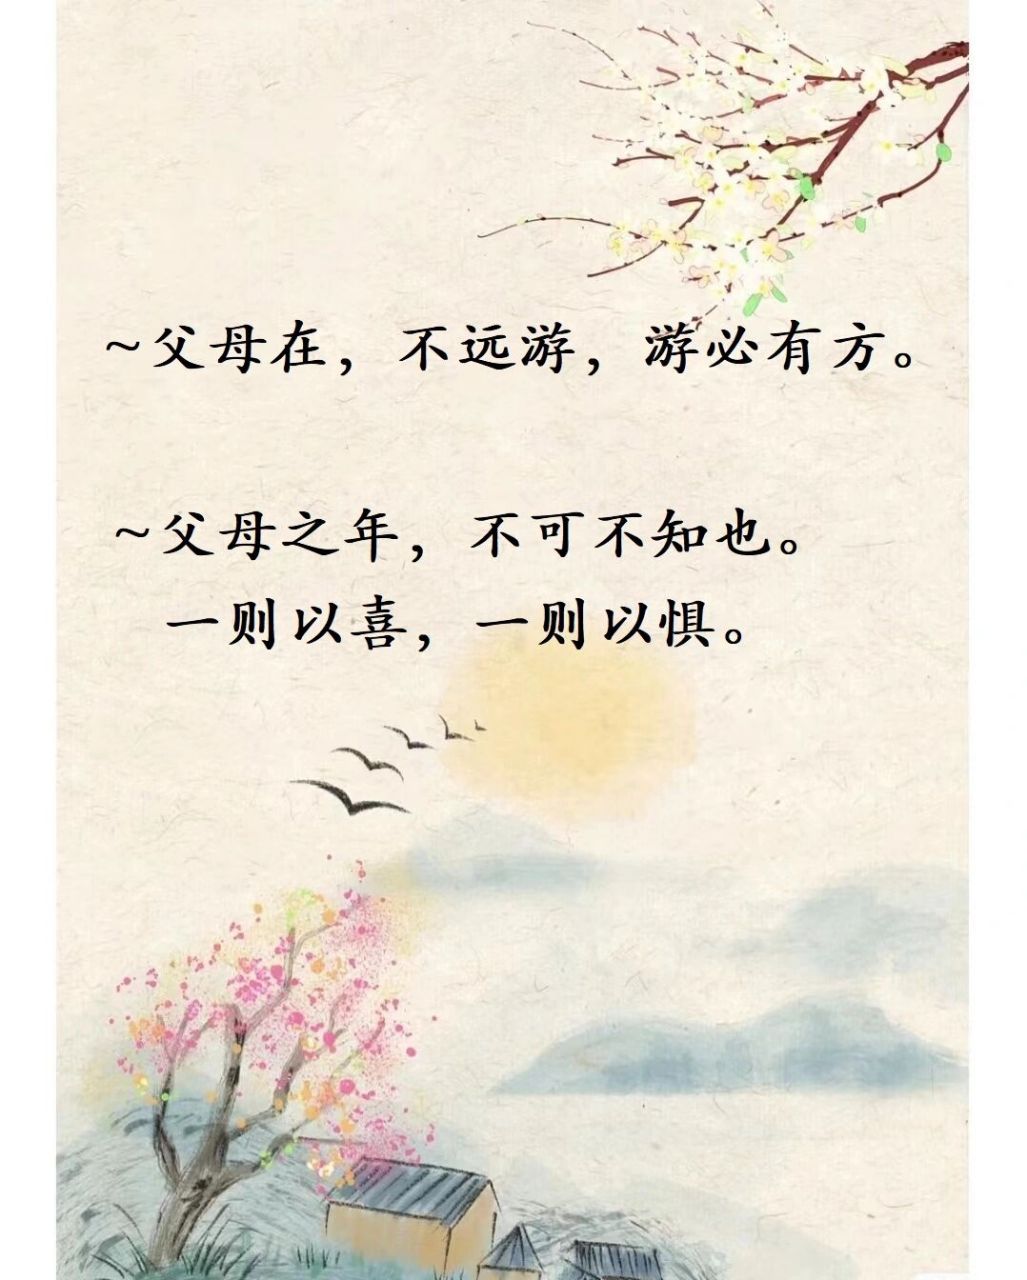 ~父母在，不远游，游必有方。
~父母之年，不可不知也。
一则以喜，一则以惧。